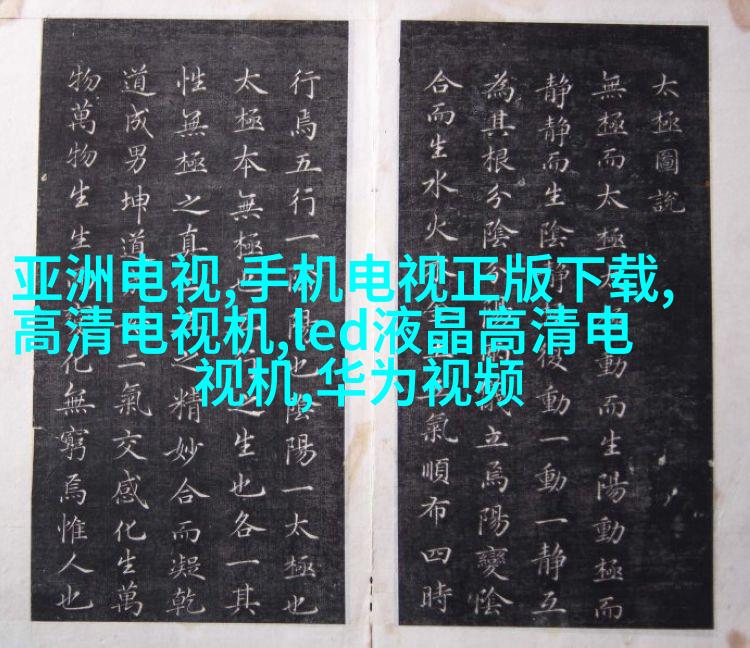 亚洲电视,手机电视正版下载,
高清电视机,led液晶高清电
视机,华为视频
太極圖說
無極而太極動而生陽動極而
静静而生陰静復動一動一静互
為其根分陰分立焉陽變陰
合而生水火氣順布四時
行焉五行一陽也陰陽一太極也
太極本無極之生也各一其
性無極之真之精妙合而凝乾
道成男坤道二氣交感化生萬
物萬物生生化無窮焉惟人也